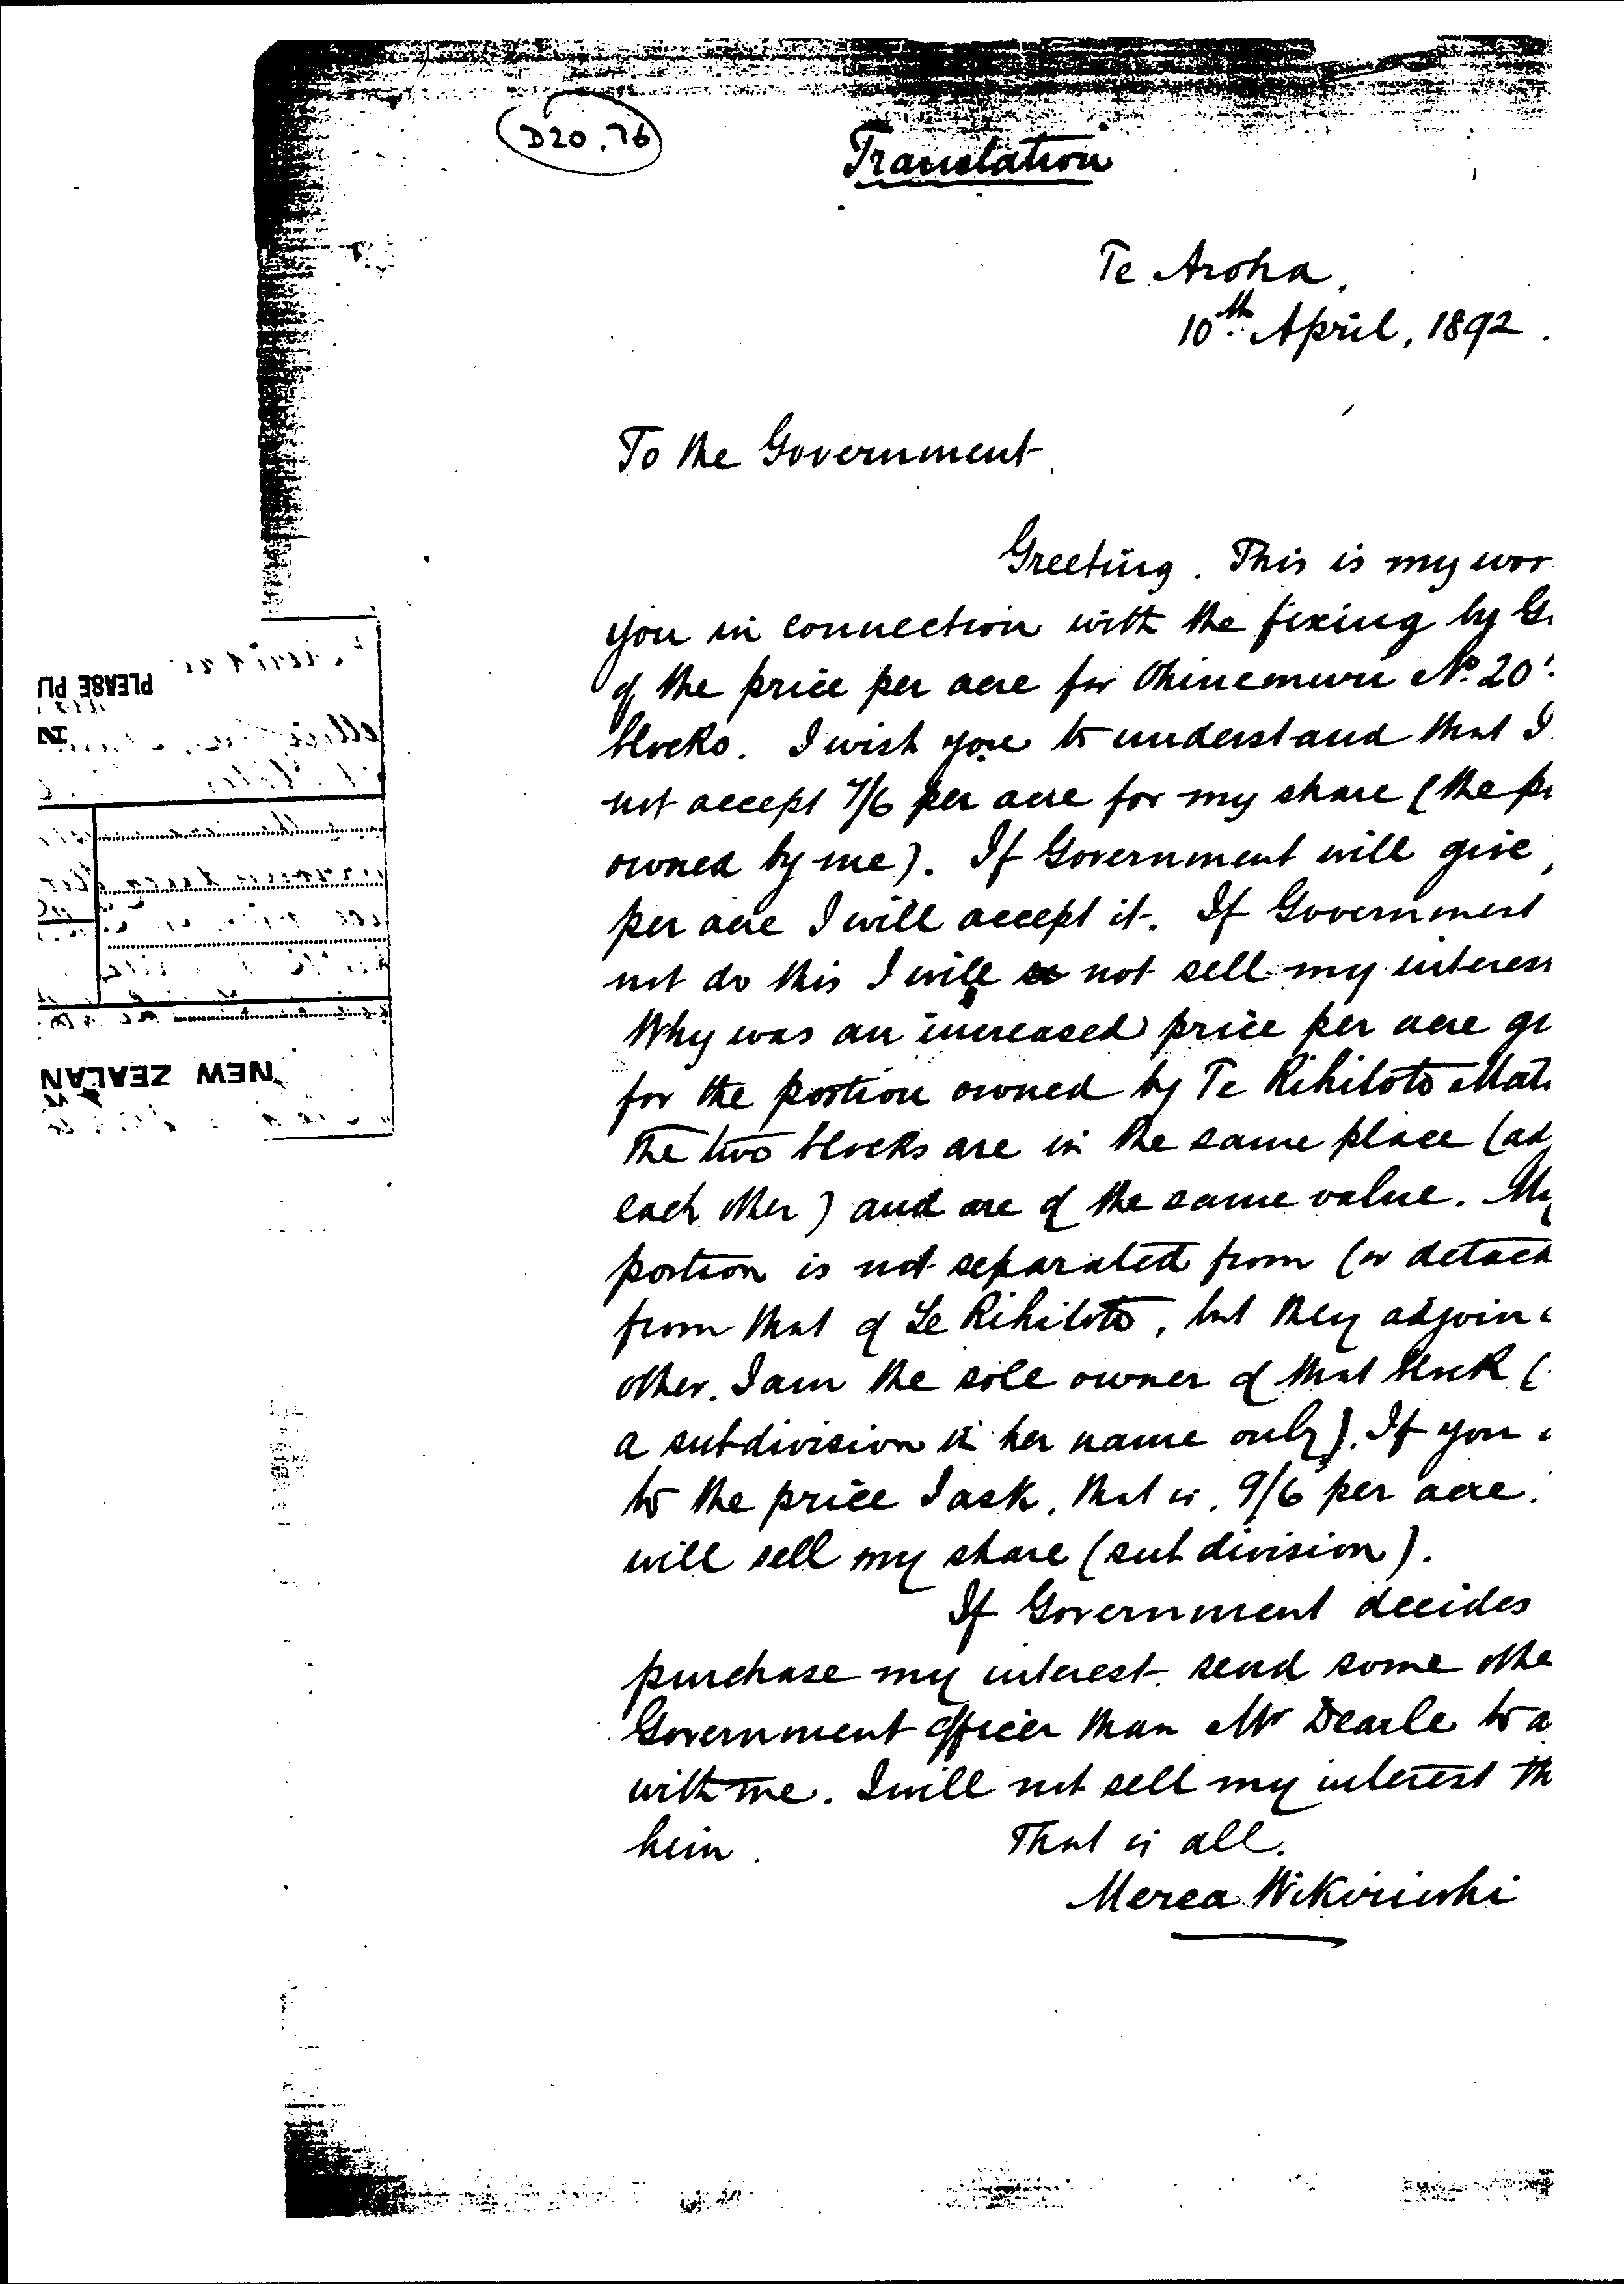 D20.76
Translation
Te Aroha,
10th April, 1892.
To the Government.
Greeting. This is my wor
you in connection with the fixing by G
of the price per acre for Ohinemuri No. 20
blocks. I wish you to understand that I
not accept 7/6 per acre for my share (the p
owned by me). If Government will give
per acre I will accept it. If Government
not do this I will not sell my interes
Why was an increased price per acre gi
for the portion owned by Te Rihitoto Mat
the two blocks are in the same place (ad
each other) and are of the same value. My
portion is not separated from (or detach
from that of Te Rihitoto, but they adjoin
other. I am the sole owner of that block (
a subdivision in her name only). If you
to the price I ask, that is, 9/6 per acre.
will sell my share (subdivision).
If Government decides
purchase my interest, send some othe
Government officer than Mr Dearle to a
with me. I will not sell my interest th
him.
That is all.
Merea Wikiriwhi
PLEASE PU
IN
NEW ZEALAN